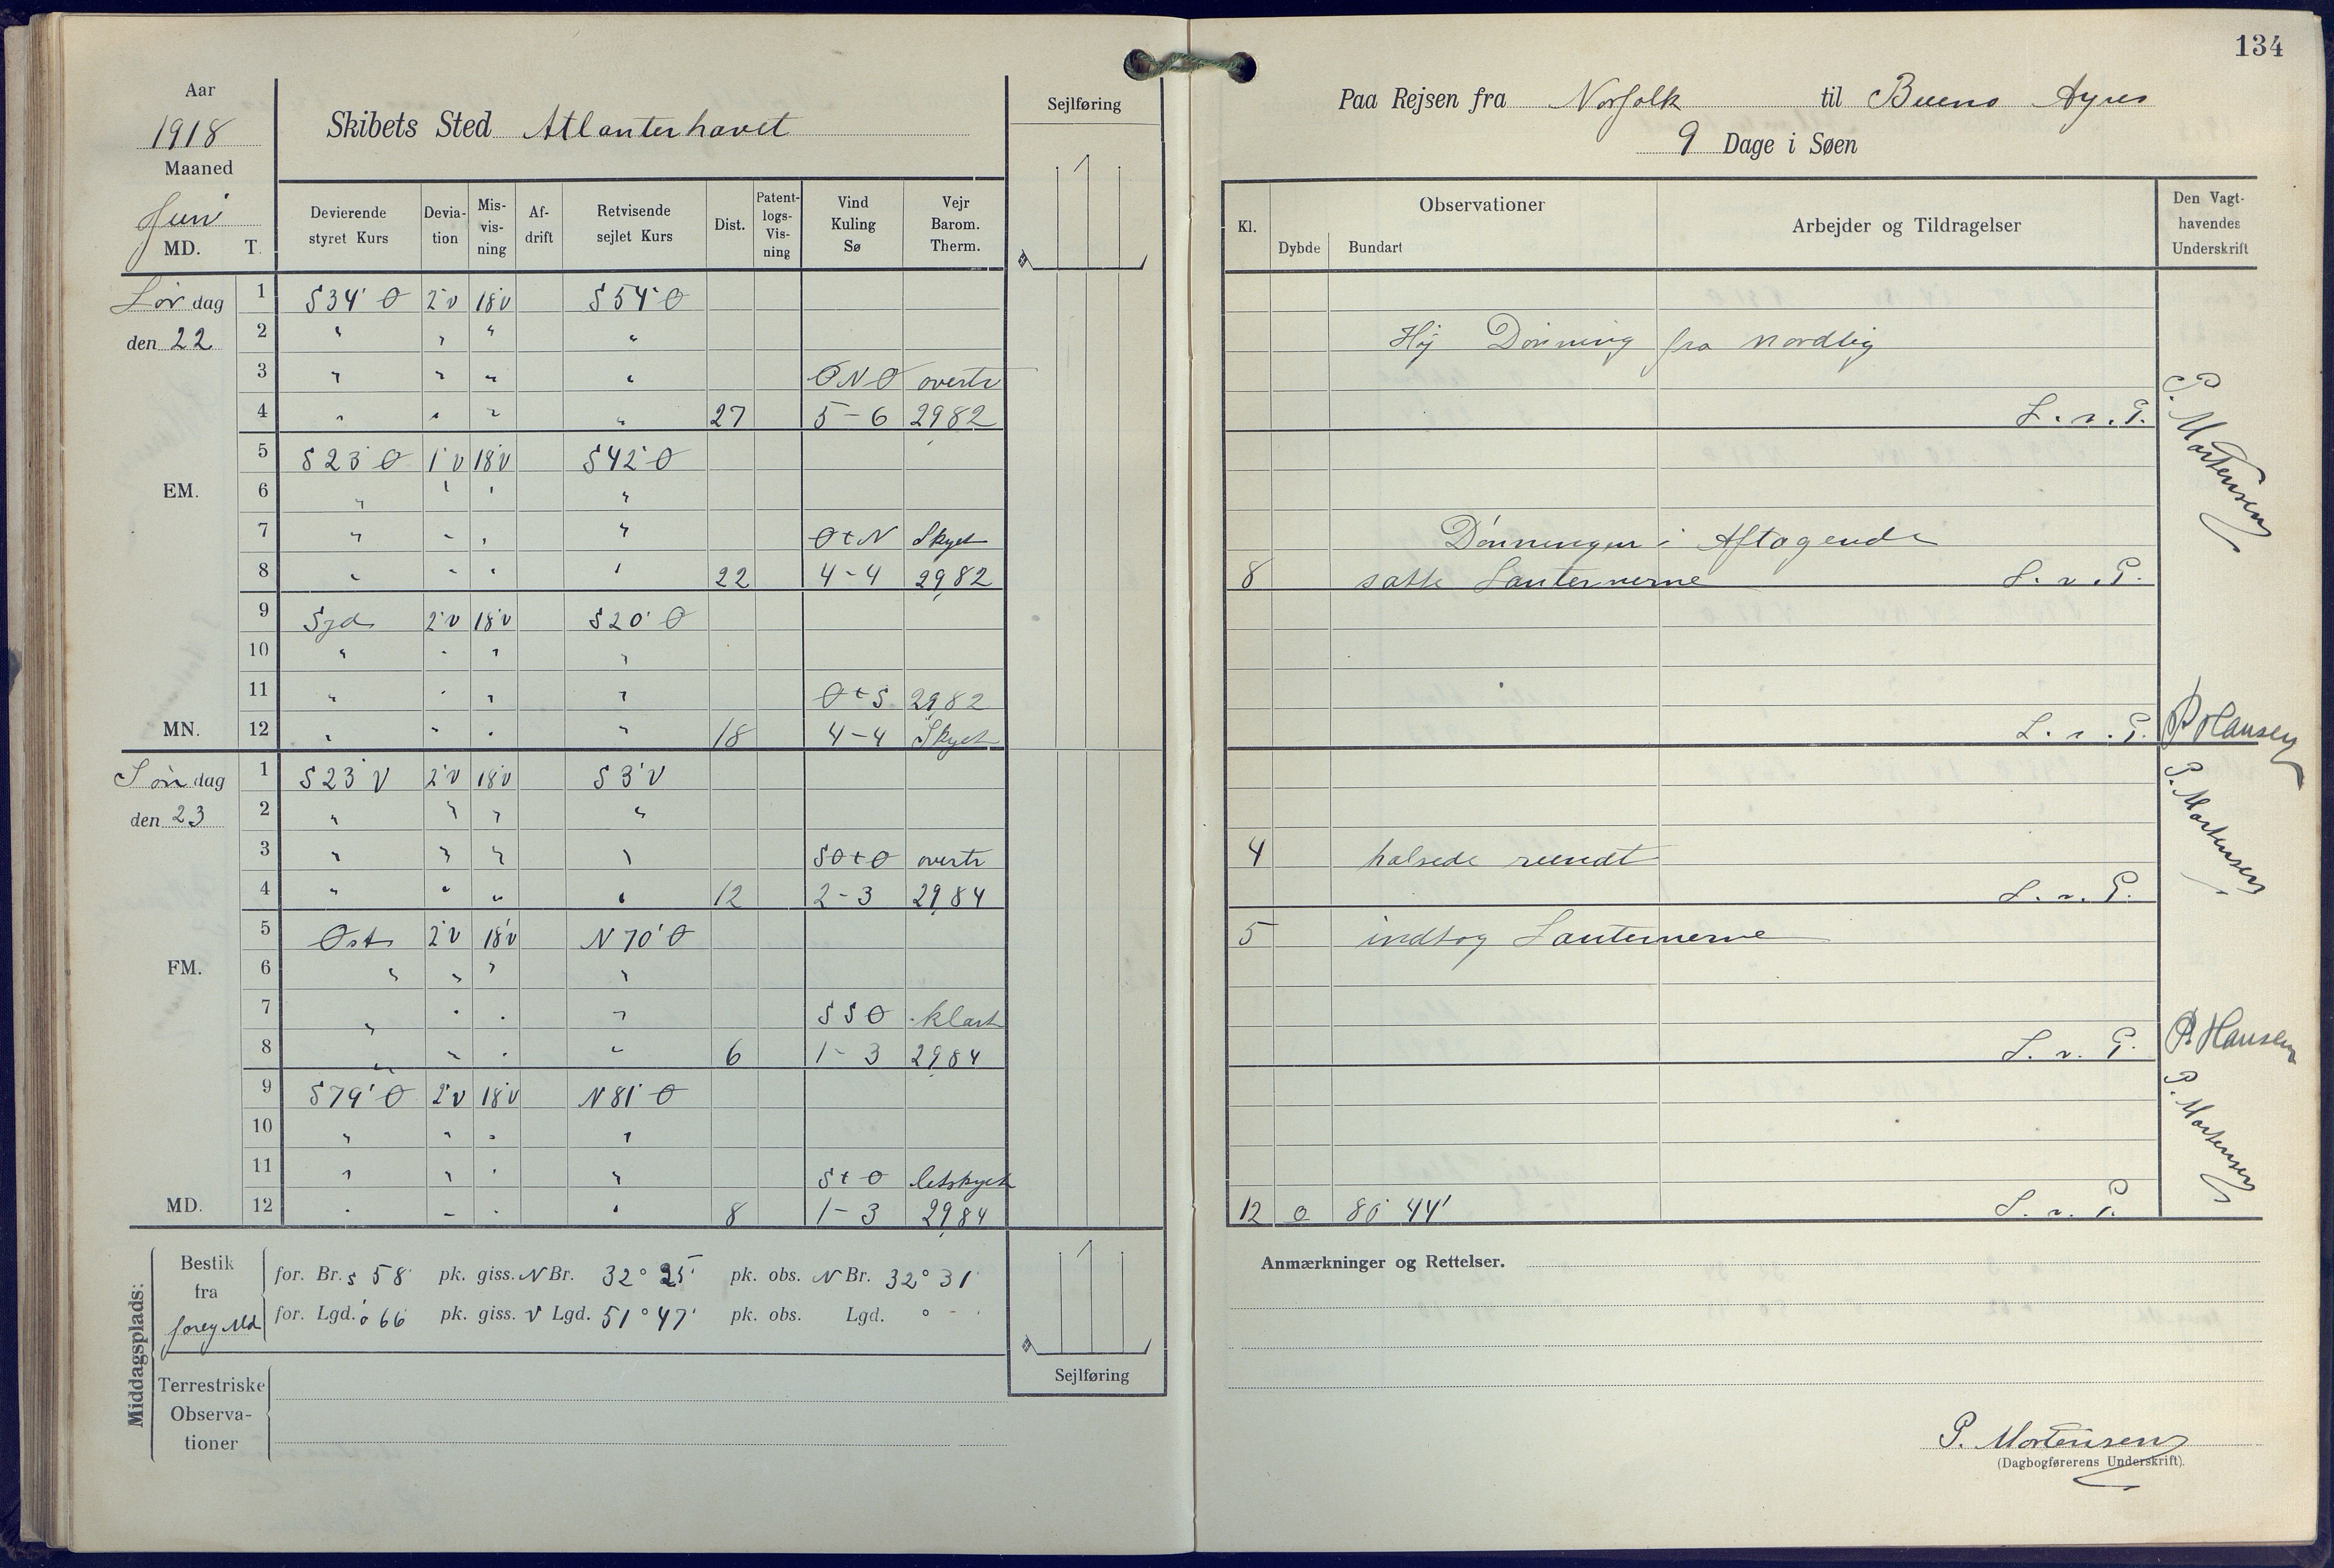 134
Aar
1918
Maaned
Juni
MD. T.
Skibets Sted Atlanterhavet
Sejlføring
Paa Rejsen fra Norfolk til Buenos Ayres
9 Dage i Søen
Devierende styret Kurs
Devia-tion
Mis-vis-ning
Af-drift
Retvisende sejlet Kurs
Dist.
Patent-logs-Vis-ning
Vind Kuling Sø
Vejr Barom. Therm.
Kl.
Observationer
Dybde Bundart
Arbejder og Tildragelser
Den Vagt-havendes Underskrift
Lør dag 1 S34°Ø 2°V 18°V S54°Ø
den 22 2 " " " "
Høj Dønning fra Nordlig
3 " " " " ØNØ overtr
4 " " " " 27 5-6 29,82 L. v. P.
P. Mortensen
5 S23°Ø 1°V 18°V S42°Ø
EM. 6 " " " "
7 " " " " Ø t N Skyet
Dønningen i Aftagende
8 " " " " 22 4-4 29,82
8 satte Lanternerne L. v. P.
9 Syd 2°V 18°V S20°Ø
10 " " " "
11 " " " " Ø t S 29,82
MN. 12 " " " " 18 4-4 Skyet L. v. P. P Hansen
Søn dag 1 S23°V 2°V 18°V S3°V
den 23 2 " " " "
3 " " " " SØ t Ø overtr
4 halsede rundt
4 " " " " 12 2-3 29,84 L. v. P.
P. Mortensen
5 Øst 2°V 18°V N70°Ø
5 indtog Lanternerne
FM. 6 " " " "
7 " " " " SSØ klart
8 " " " " 6 1-3 29,84 L. v. P. P. Hansen
9 S79°Ø 2°V 18°V N81°Ø
10 " " " "
11 " " " " S t Ø letskyet
MD. 12 " " " " 8 1-3 29,84
12 o 80° 44' L. v. P.
P. Mortensen
Middagsplads:
Bestik fra foreg Md
for. Br. S 58' pk. giss. N Br. 32° 25' pk. obs. N Br. 32° 31'
for. Lgd. ö 66 pk. giss. V Lgd. 51° 47' pk. obs. Lgd. ° - '
Terrestriske Observa-tioner
Sejlføring
Anmærkninger og Rettelser.
P. Mortensen
(Dagbogførerens Underskrift).